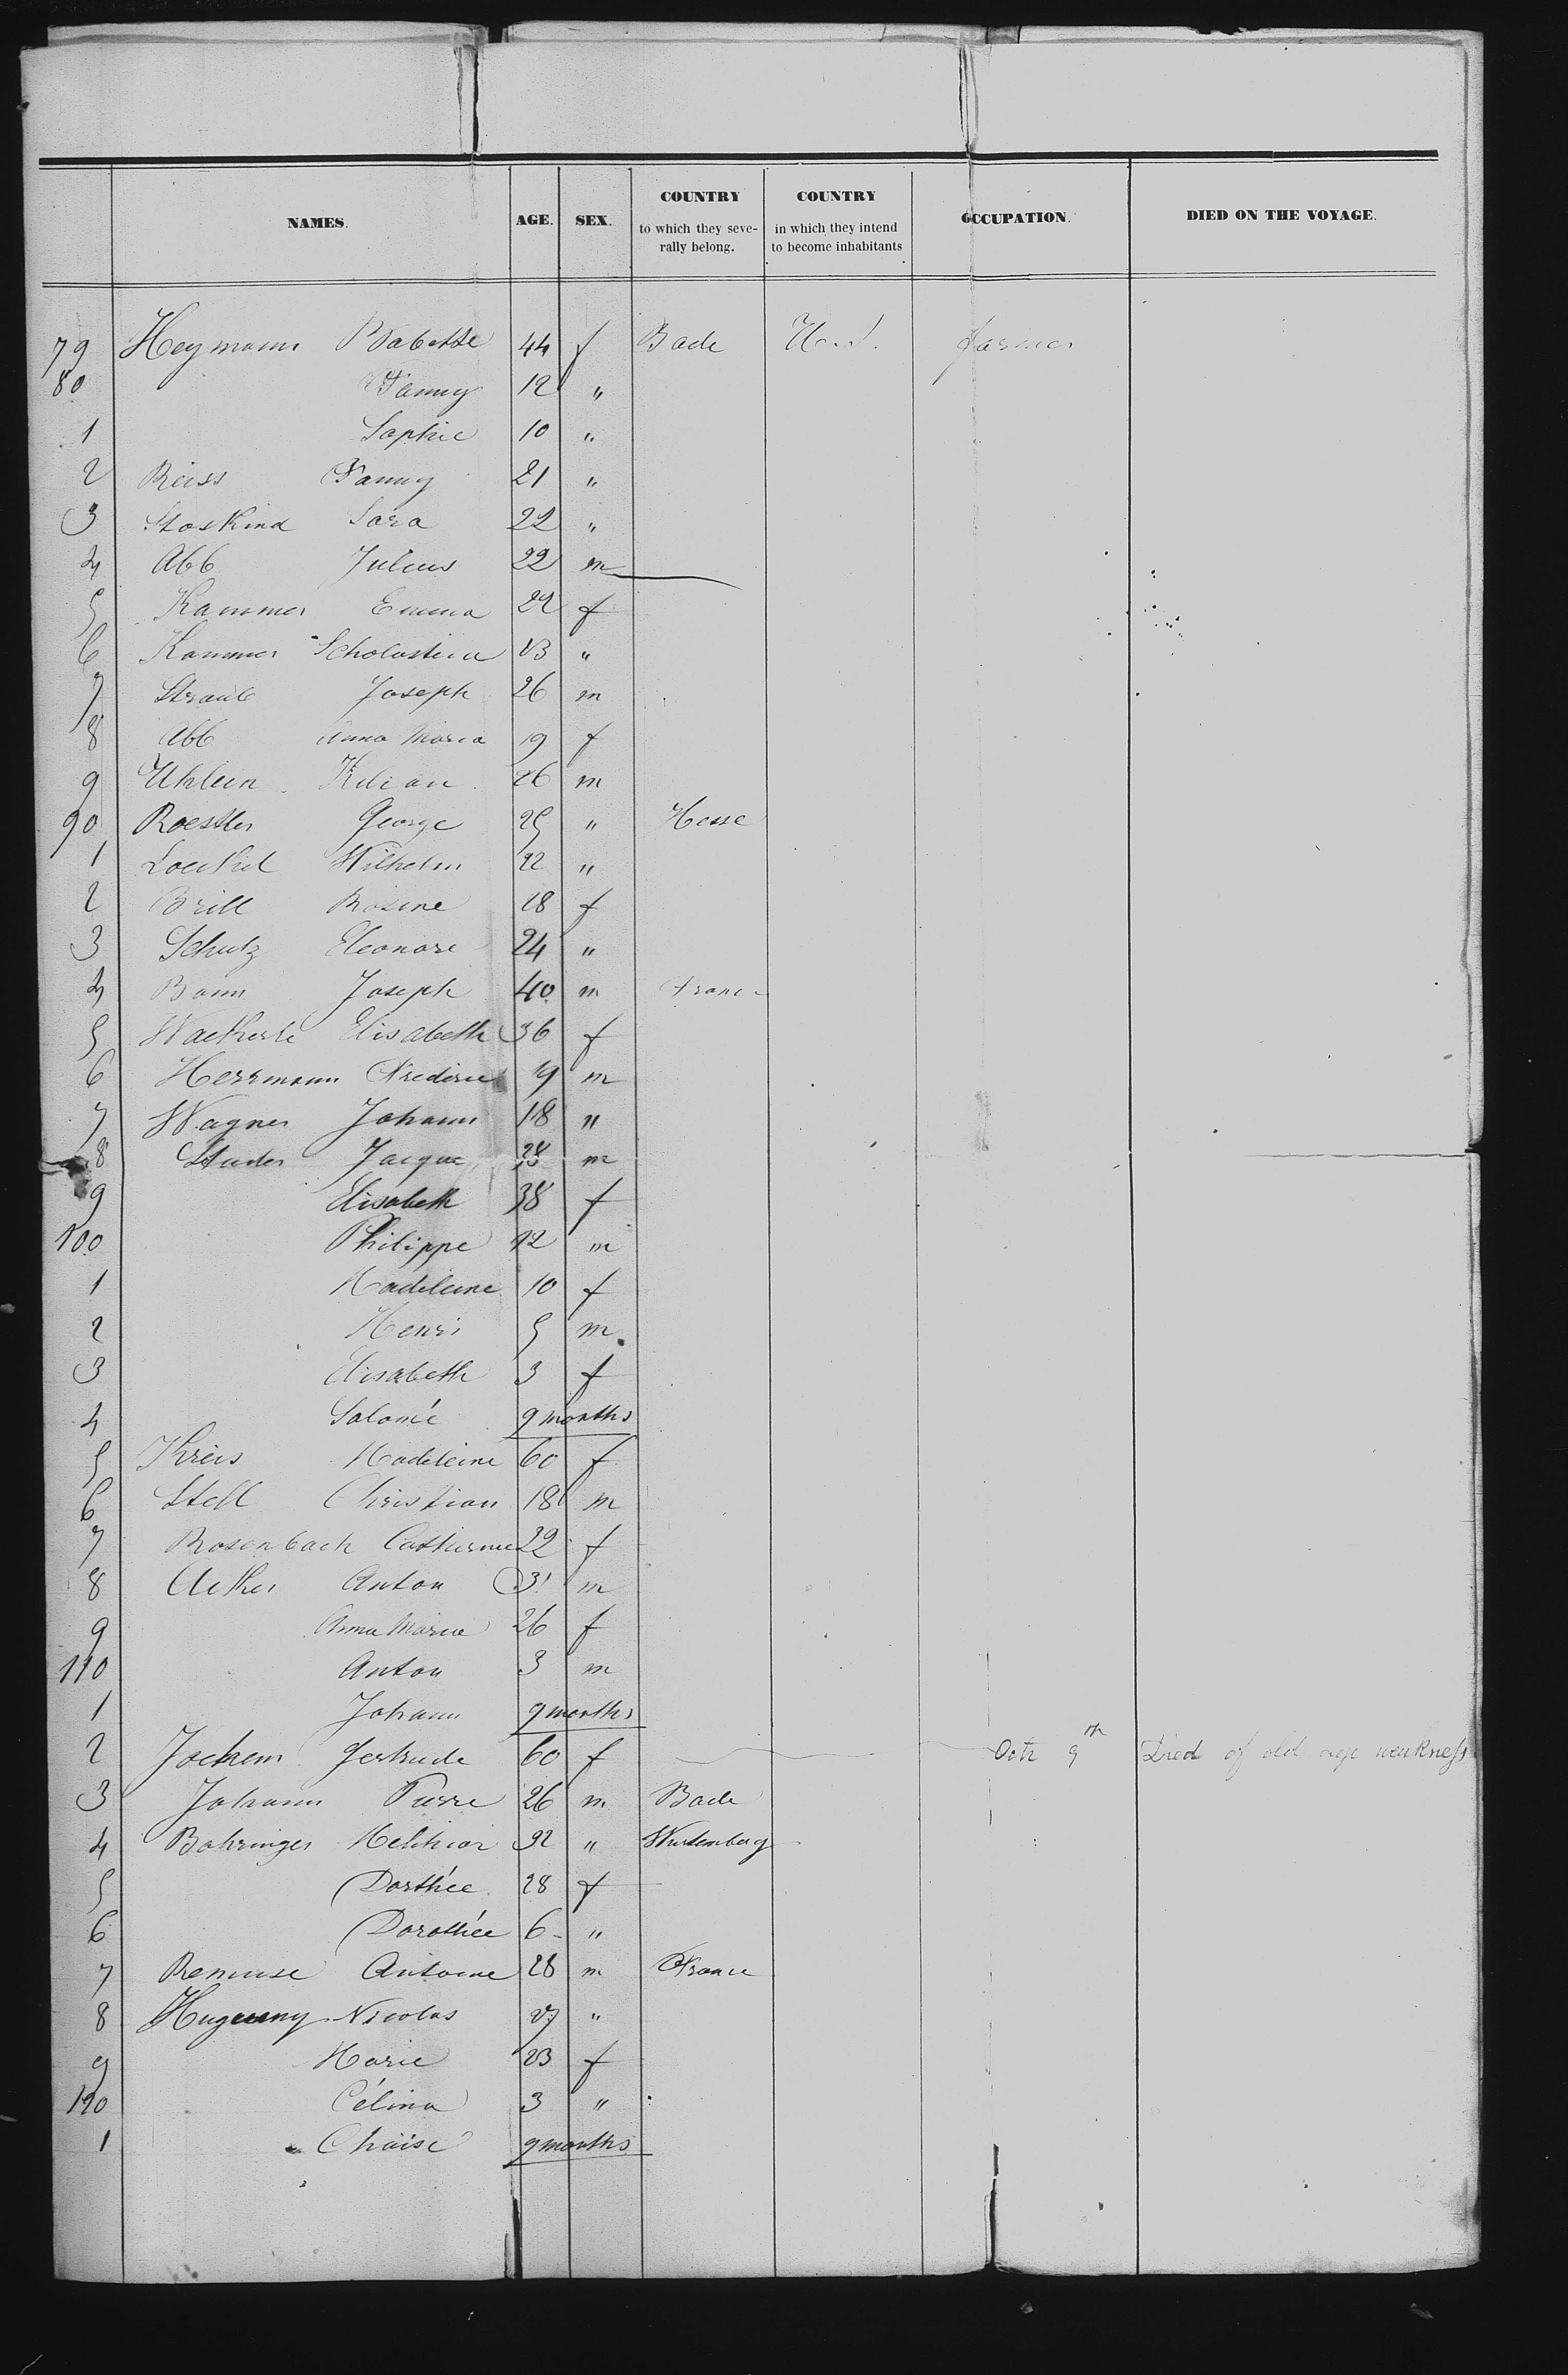 NAMES. AGE. SEX. COUNTRY to which they severally belong. COUNTRY in which they intend to become inhabitants OCCUPATION. DIED ON THE VOYAGE.
79 Heymann Babette 44 f Bade farmer
80 Fanny 12 "
1 Sophie 10 "
2 Reiss Fanny 21 "
3 Stoskind Sara 22 "
4 Abb Julius 22 m
5 Kammer Emma 22 f
6 Kammer Scholastica 23 "
7 Straub Joseph 26 m
8 Abb Anna Maria 19 f
9 Uhlein Kilian 26 m
90 Roessler George 25 " Hesse
1 Wilhelm 22 "
2 Brill Rosine 18 f
3 Schutz Eleonore 24 "
4 Joseph 40 m France
5 Wackerle Elisabeth 36 f
6 Herrmann Frederic 19 m
7 Wagner Johann 18 "
8 Studer Jacque m
9 Elisabeth 38 f
100 Philippe 12 m
1 Madeleine 10 f
2 Henri 5 m
3 Elisabeth 3 f
4 Salomé 9 months
5 Kreis Madeleine 60 f
6 Stell Christian 18 m
7 Rosenbach Catherine 32 f
8 Anton 31 m
9 Anna Maria 26 f
110 Anton 3 m
1 Johann 9 months
2 Jochem Gertrude 60 f Octr 9th Died of old age weakness
3 Johann Pierre 26 m Bade
4 Bohringer Melchior 32 " Wurtemberg
5 Dorthée 28 f
6 Dorothée 6 "
7 Antoine 28 m France
8 Hugueny Nicolas 27 "
9 Marie 23 f
120 Célina 3 "
1 9 months